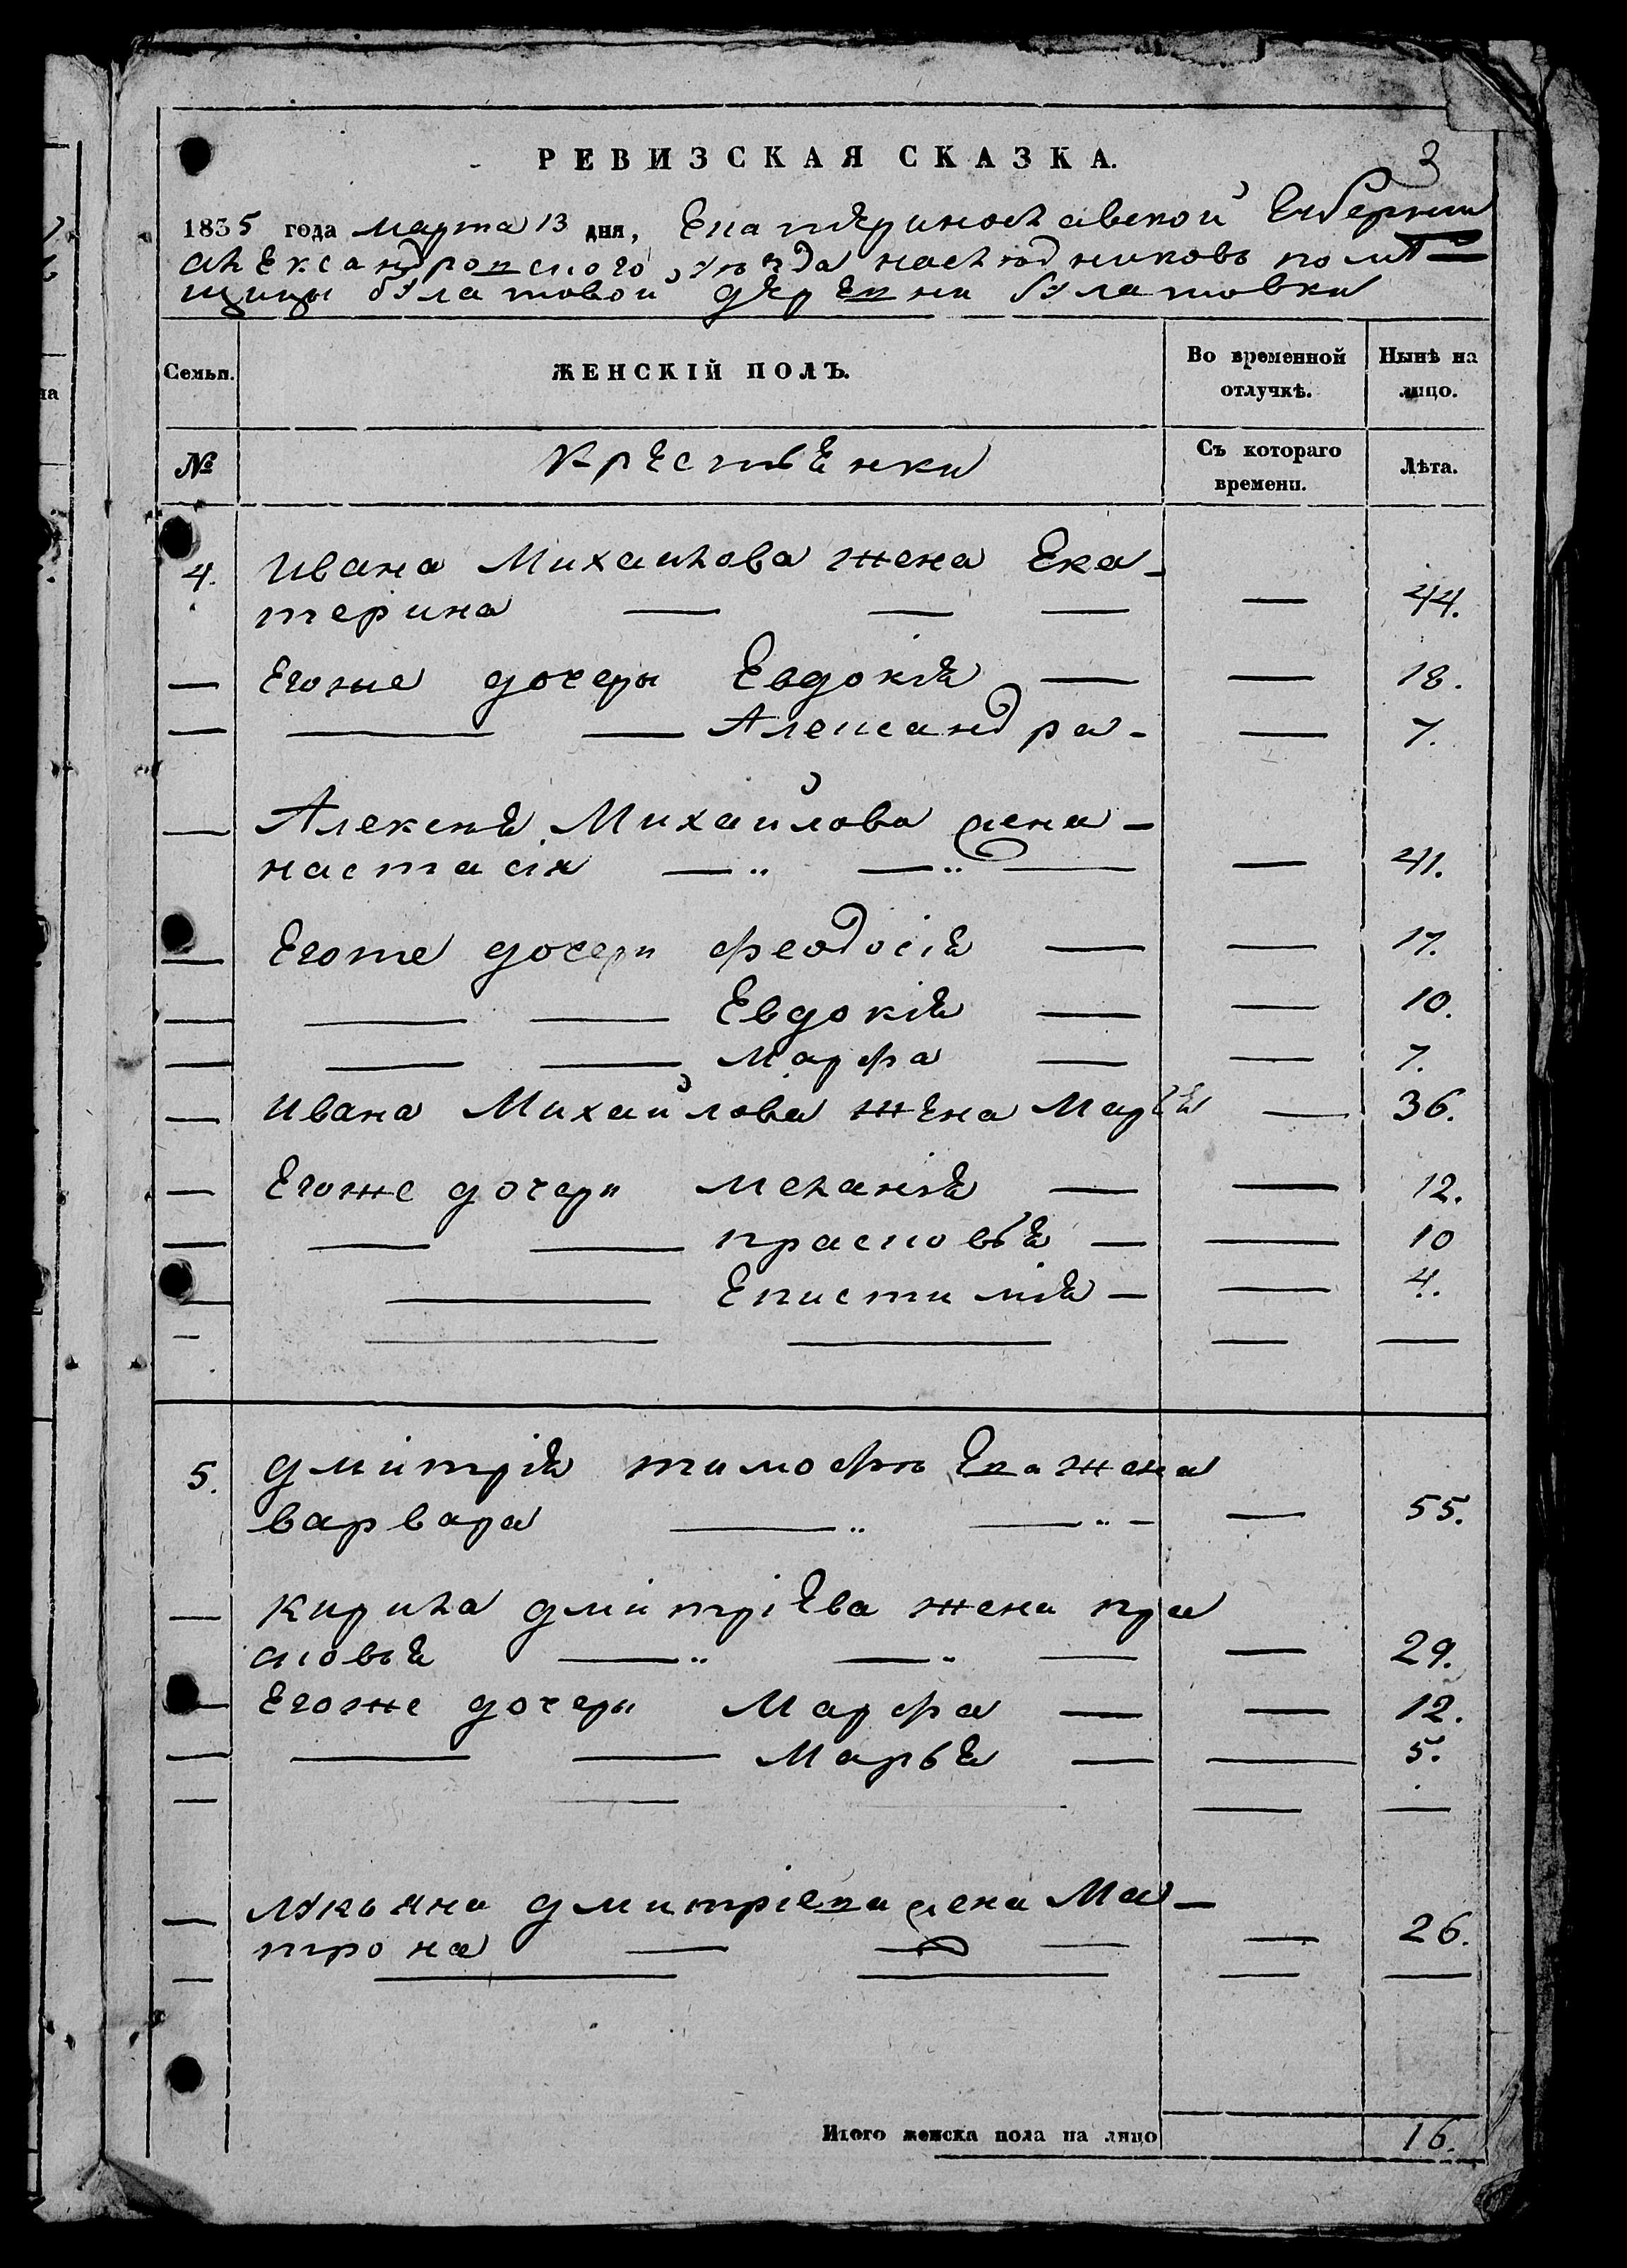 РЕВИЗСКАЯ СКАЗКА.
3
1835 года марта 13 дня, Екатериославской Губернии
Александровского уезда наследниковъ помѣ=
щицы булатовой деревни булатовки
Семьи.
ЖЕНСКІЙ ПОЛЪ.
Во временной отлучкѣ.
Нынѣ на лицо.
№
крестьенки
Съ котораго времени.
Лѣта.
4. Ивана Михаилова жена Ека-
терина — — — — 44.
— Егоже дочери Евдокія — — 18.
— — — Александра - — 7.
— Алексѣя Михайлова жена -
настасія — — — — 41.
— Егоже дочери феодосія — — 17.
— — — Евдокія — — 10.
— — — Марфа — — 7.
— Ивана Михайлова жена Марья — 36.
— Егоже дочери меланія — — 12.
— — — прасковья — — 10
— — Епистимія — — 4.
— — — — —
5. дмитрія тимофѣева жена
варвара — — - — 55.
— кирила дмитріева жена пра
сковья — — — — 29.
— Егоже дочери Марфа — — 12.
— — — Марья — — 5.
— — — —
— лукьяна дмитріева жена Ма-
трона — — — — 26.
— — — — —
Итого женска пола на лицо 16.